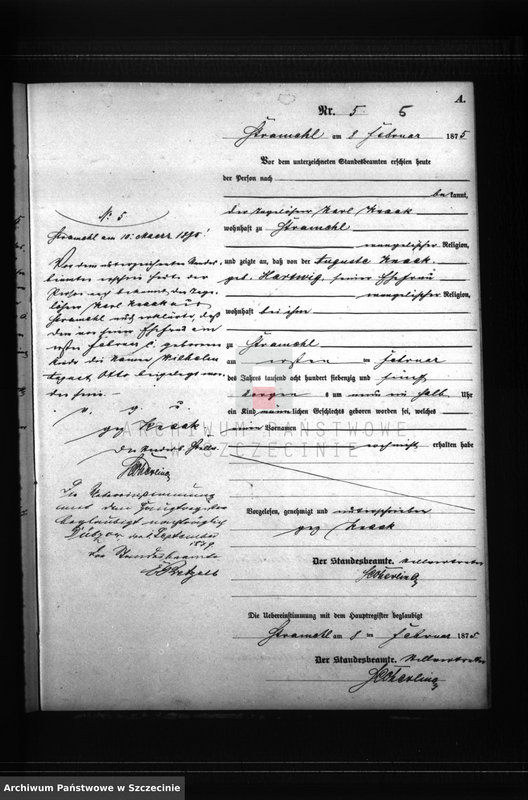 A.
Nr. 5 5
Stramehl am 8 Februar 1875
Vor dem unterzeichneten Standesbeamten erschien heute
der Person nach
bekannt,
der Tagelöhner Karl Kraak
wohnhaft zu Stramehl
evangelischer Religion,
und zeigte an, daß von der Auguste Kraak
geb. Hartwig, seiner Ehefrau
evangelischer Religion,
wohnhaft bei ihm
zu Stramehl
am ersten Februar
des Jahres tausend acht hundert siebenzig und fünf
Morgens um neun ein halb Uhr
ein Kind männlichen Geschlechts geboren worden sei, welches
Vornamen
noch nicht erhalten habe
Vorgelesen, genehmigt und unterschrieben
gez Kraak
Der Standesbeamte. Stellvertreter
Die Uebereinstimmung mit dem Hauptregister beglaubigt
Stramehl am 8 Februar 1875
Der Standesbeamte. Stellvertreter
No 5
Stramehl am 10. Maerz
Vor dem unterzeichneten Standes
beamten erschien heute der
Person nach bekannt, der Tage
löhner Karl Kraak aus
Stramehl und erklärte, daß
dem von seiner Ehefrau am
ersten Februar c. geborenen
Kinde die Namen Wilhelm
August Otto beigelegt wor
den seien.
v. g. u.
gez Kraak
Der Standes
Die Uebereinstimmung
mit dem Hauptregister
beglaubigt nachträglich
September
Der Standesbeamte
ARCHIWUM PAŃSTWOWE
W SZCZECINIE
Archiwum Państwowe w Szczecinie